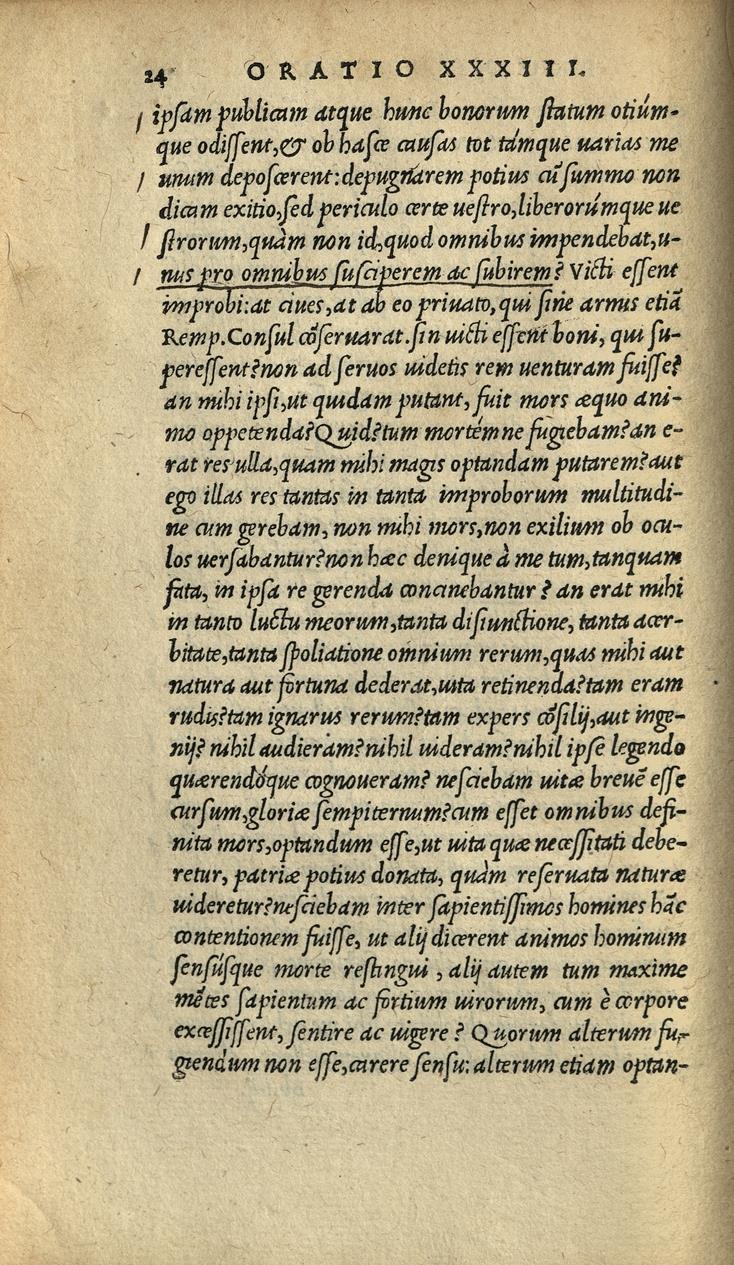 24 ORATIO XXXIII.
ipsam publicam atque hunc bonorum statum otiúm-
que odissent,& ob hasce causas tot támque uarias me
unum deposcerent:depugnarem potius cū summo non
dicam exitio,sed periculo certe uestro,liberorúmque ue
strorum,quàm non id,quod omnibus impendebat,u-
nus pro omnibus susciperem ac subirem? Victi essent
improbi:at ciues,at ab eo priuato,qui sine armis etiā
Remp.Consul cōseruarat.sin uicti essent boni, qui su-
peressent?non ad seruos uidetis rem uenturam fuisse?
an mihi ipsi,ut quidam putant, fuit mors æquo ani-
mo oppetenda?Quid?tum mortémne fugiebam?an e-
rat res ulla,quam mihi magis optandam putarem?aut
ego illas res tantas in tanta improborum multitudi-
ne cum gerebam, non mihi mors,non exilium ob ocu-
los uersabantur?non hæc denique à me tum,tanquam
fata, in ipsa re gerenda concinebantur? an erat mihi
in tanto luctu meorum,tanta disiunctione, tanta acer-
bitate,tanta spoliatione omnium rerum,quas mihi aut
natura aut fortuna dederat,uita retinenda?tam eram
rudis?tam ignarus rerum?tam expers cōsilij,aut inge-
nij? nihil audieram?nihil uideram?nihil ipse legendo
quærendóque cognoueram? nesciebam uitæ breuē esse
cursum,gloriæ sempiternum?cum esset omnibus defi-
nita mors,optandum esse,ut uita quæ necessitati debe-
retur, patriæ potius donata, quàm reseruata naturæ
uideretur?nesciebam inter sapientissimos homines hāc
contentionem fuisse, ut alij dicerent animos hominum
sensúsque morte restingui, alij autem tum maxime
mētes sapientum ac fortium uirorum, cum è corpore
excessissent, sentire ac uigere? Quorum alterum fu-
giendum non esse,carere sensu: alterum etiam optan-